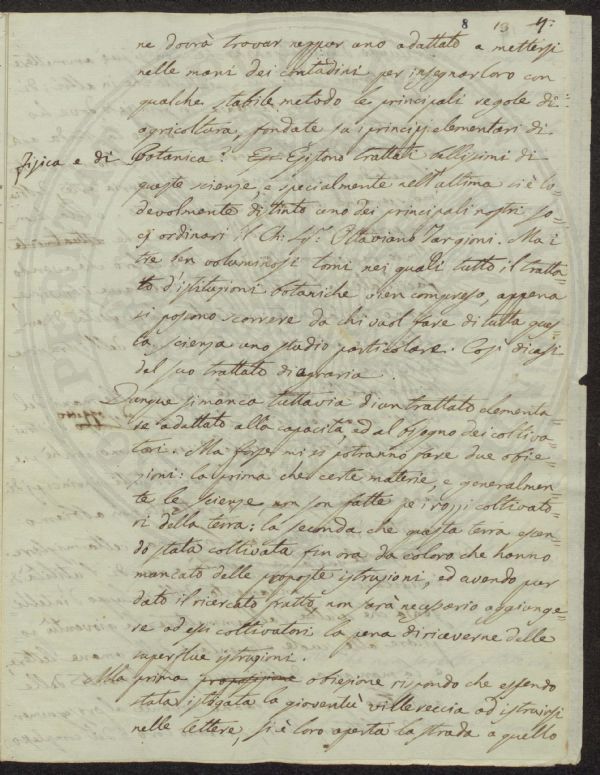 8 13 4:
ne dovrà trovar neppur uno adattato a mettersi
nelle mani dei contadini per insegnar loro con
qualche stabile metodo le principali regole di
agricoltura, fondate su i principj elementari di
fisica e di Botanica? Esistono trattati bellissimi di
queste scienze, e specialmente nell'ultima si è lo-
devolmente distinto uno dei principali nostri so-
cj ordinari il Ch. Sig.r Ottaviano Targioni. Ma i
tre ben voluminosi tomi nei quali tutto il tratta-
to d'istituzioni botaniche vien compreso, appena
si possono scorrere da chi vuol fare di tutta ques-
ta scienza uno studio particolare. Così dicasi
del suo trattato di agraria.
Dunque si manca tuttavia di un trattato elementa-
re adattato alla capacità, ed al bisogno dei coltiva-
tori. Ma forse mi si potranno fare due obie-
zioni: la prima che certe materie, e generalmen-
te le scienze non son fatte pei rozzi coltivato-
ri della terra: la seconda che questa terra essen-
do stata coltivata fin ora da coloro che hanno
mancato delle proposte istruzioni, ed avendo pur
dato il ricercato frutto, non sarà necessario aggiunge-
re ad essi coltivatori la pena di riceverne delle
superflue istruzioni.
Alla prima proposizione obiezione rispondo che essendo
stata istigata la gioventù villereccia ad istruirsi
nelle lettere, si è loro aperta la strada a quello